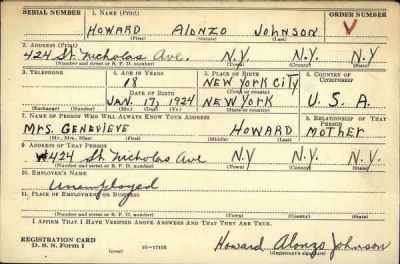 SERIAL NUMBER 1. NAME (Print) ORDER NUMBER
HOWARD ALONZO JOHNSON V
(First) (Middle) (Last)
2. ADDRESS (Print)
424 St. Nicholas Ave. N.Y. N.Y. N.Y.
(Number and street or R. F. D. number) (Town) (County) (State)
3. TELEPHONE 4. AGE IN YEARS 5. PLACE OF BIRTH 6. COUNTRY OF CITIZENSHIP
18 NEW YORK CITY
DATE OF BIRTH (Town or county)
JAN. 17, 1924 NEW YORK U.S.A.
(Exchange) (Number) (Mo.) (Day) (Yr.) (State or country)
7. NAME OF PERSON WHO WILL ALWAYS KNOW YOUR ADDRESS 8. RELATIONSHIP OF THAT PERSON
Mrs. GENEVIEVE HOWARD MOTHER
(Mr., Mrs., Miss) (First) (Middle) (Last)
9. ADDRESS OF THAT PERSON
424 St. Nicholas Ave N.Y. N.Y. N.Y.
(Number and street or R. F. D. number) (Town) (County) (State)
10. EMPLOYER'S NAME
Unemployed
11. PLACE OF EMPLOYMENT OR BUSINESS
(Number and street or R. F. D. number) (Town) (County) (State)
I AFFIRM THAT I HAVE VERIFIED ABOVE ANSWERS AND THAT THEY ARE TRUE.
REGISTRATION CARD
D. S. S. Form 1 (over) 16—17105 Howard Alonzo Johnson
(Registrant's signature)